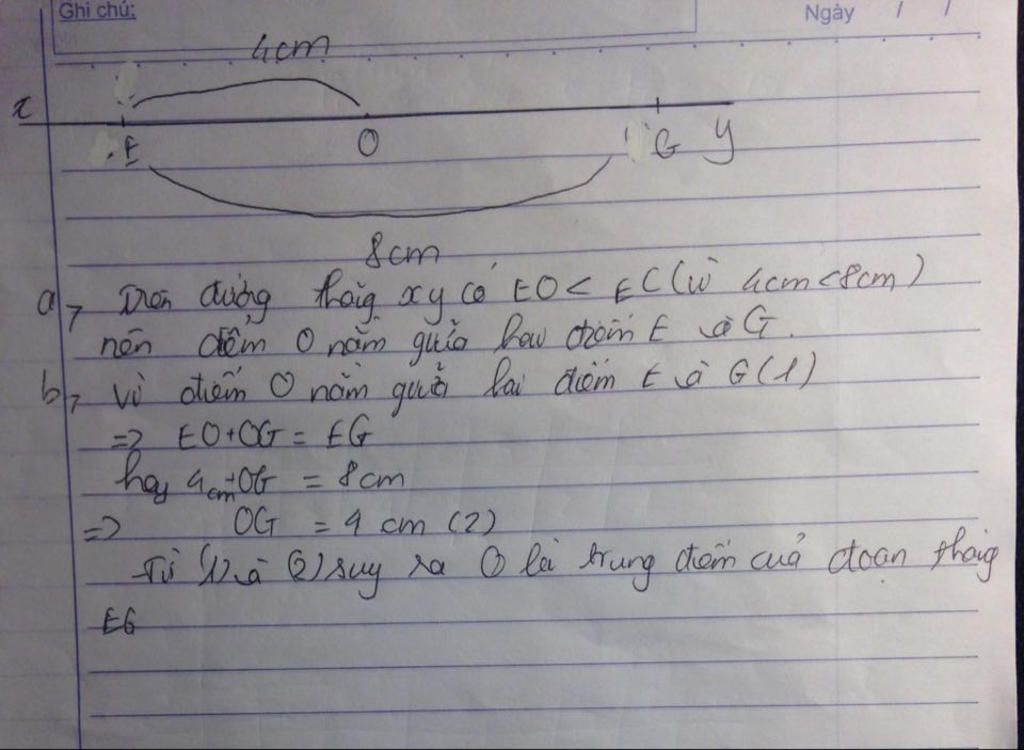 Ghi chú:
Ngày / /
4cm
x
E O G y
8cm
a, Trên đường thẳng xy có EO < EC (vì 4cm < 8cm)
nên điểm O nằm giữa hai điểm E và G.
b, Vì điểm O nằm giữa hai điểm E và G (1)
=> EO + OG = EG
hay 4cm + OG = 8cm
=> OG = 4 cm (2)
Từ (1) và (2) suy ra O là trung điểm của đoạn thẳng
EG